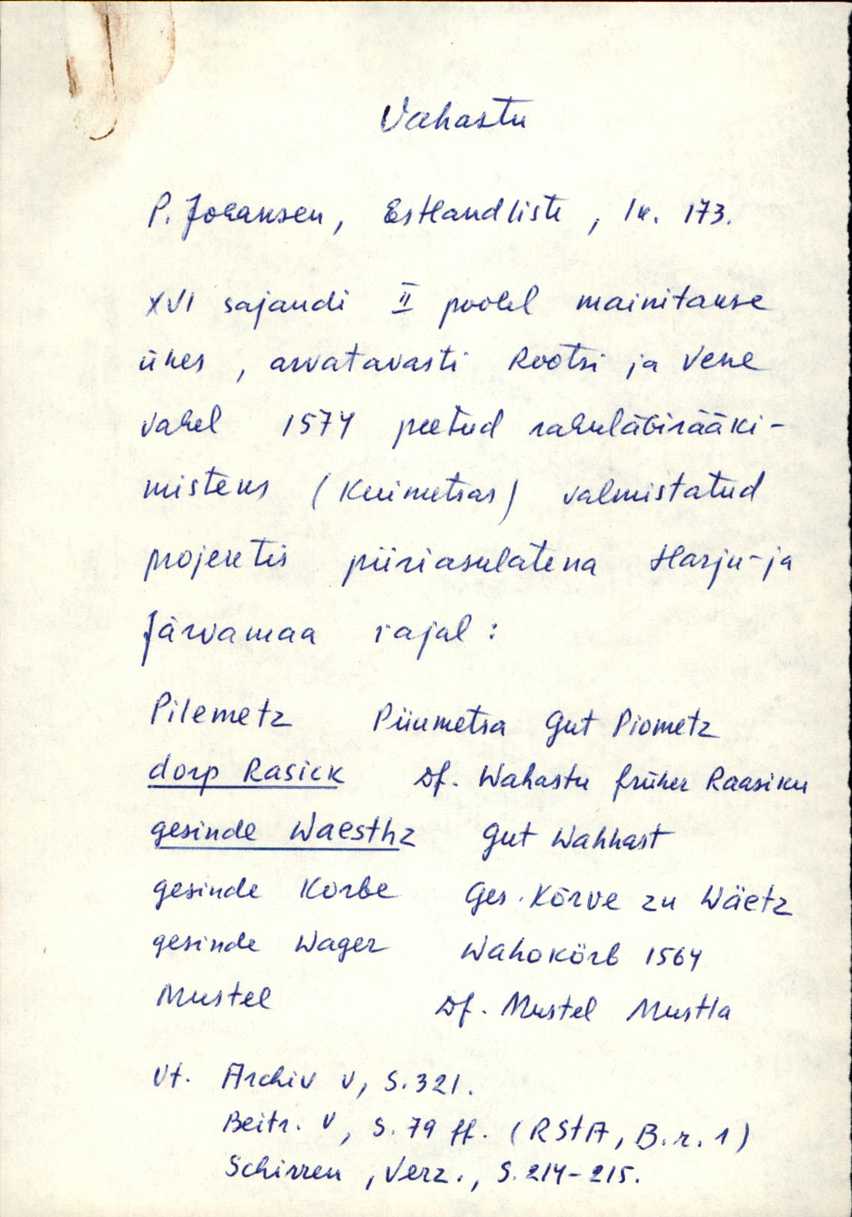 Vahastu
P. Johansen, Estlandliste, lk. 173.
XVI sajandi II poolel mainitakse
ühes, arvatavasti Rootsi ja Vene
vahel 1574 peetud rahuläbirääki-
misteks (Kuimetsas) valmistatud
projektis piiriasulatena Harju- ja
Järvamaa rajal:
Pilemetz Piiumetsa Gut Piometz
dorp Rasick Df. Wahastu früher Raasiku
gesinde Waesthz Gut Wahhast
gesinde Korbe Ges. Kõrve zu Wäetz
gesinde Wager Wahokörb 1564
Mustel Df. Mustel Mustla
Vt. Archiv V, S. 321.
Beitr. V, S. 79 ff. (RStA, B.r. 1)
Schirren, Verz., S. 214-215.